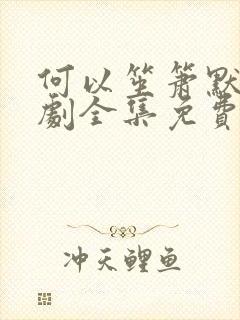 何以笙箫默
劇全集免費
冲天鲤鱼